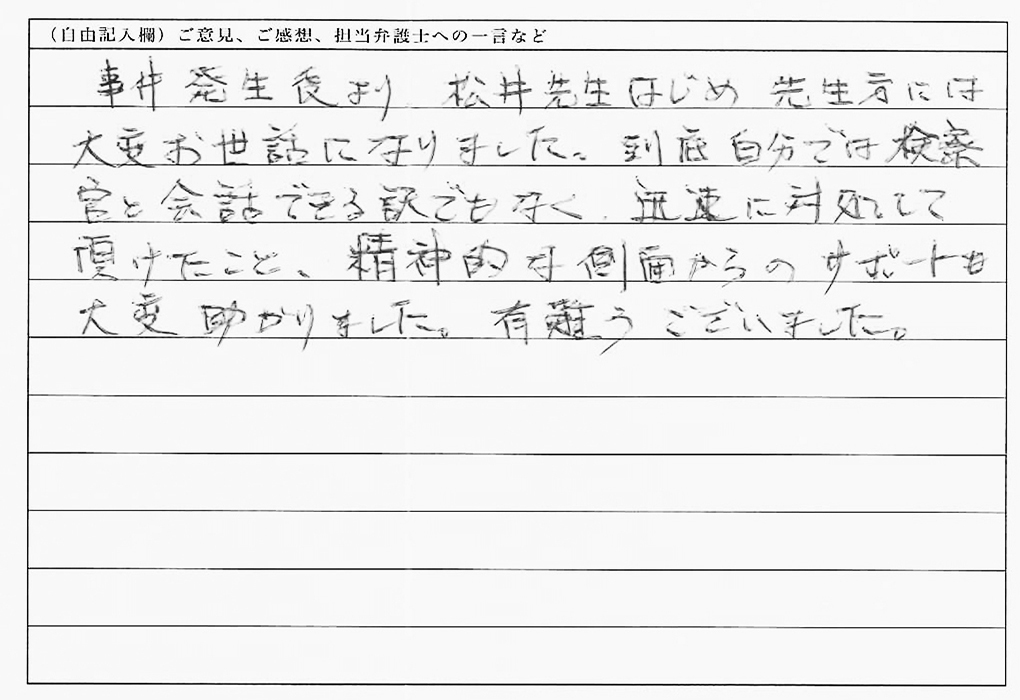 (自由記入欄)ご意見、ご感想、担当弁護士への一言など
事件発生後より 松井先生はじめ 先生方には
大変お世話になりました。到底自分では検察
官と会話できる訳でもなく、迅速に対処して
頂けたこと、精神的な側面からのサポートも
大変助かりました。有難うございました。